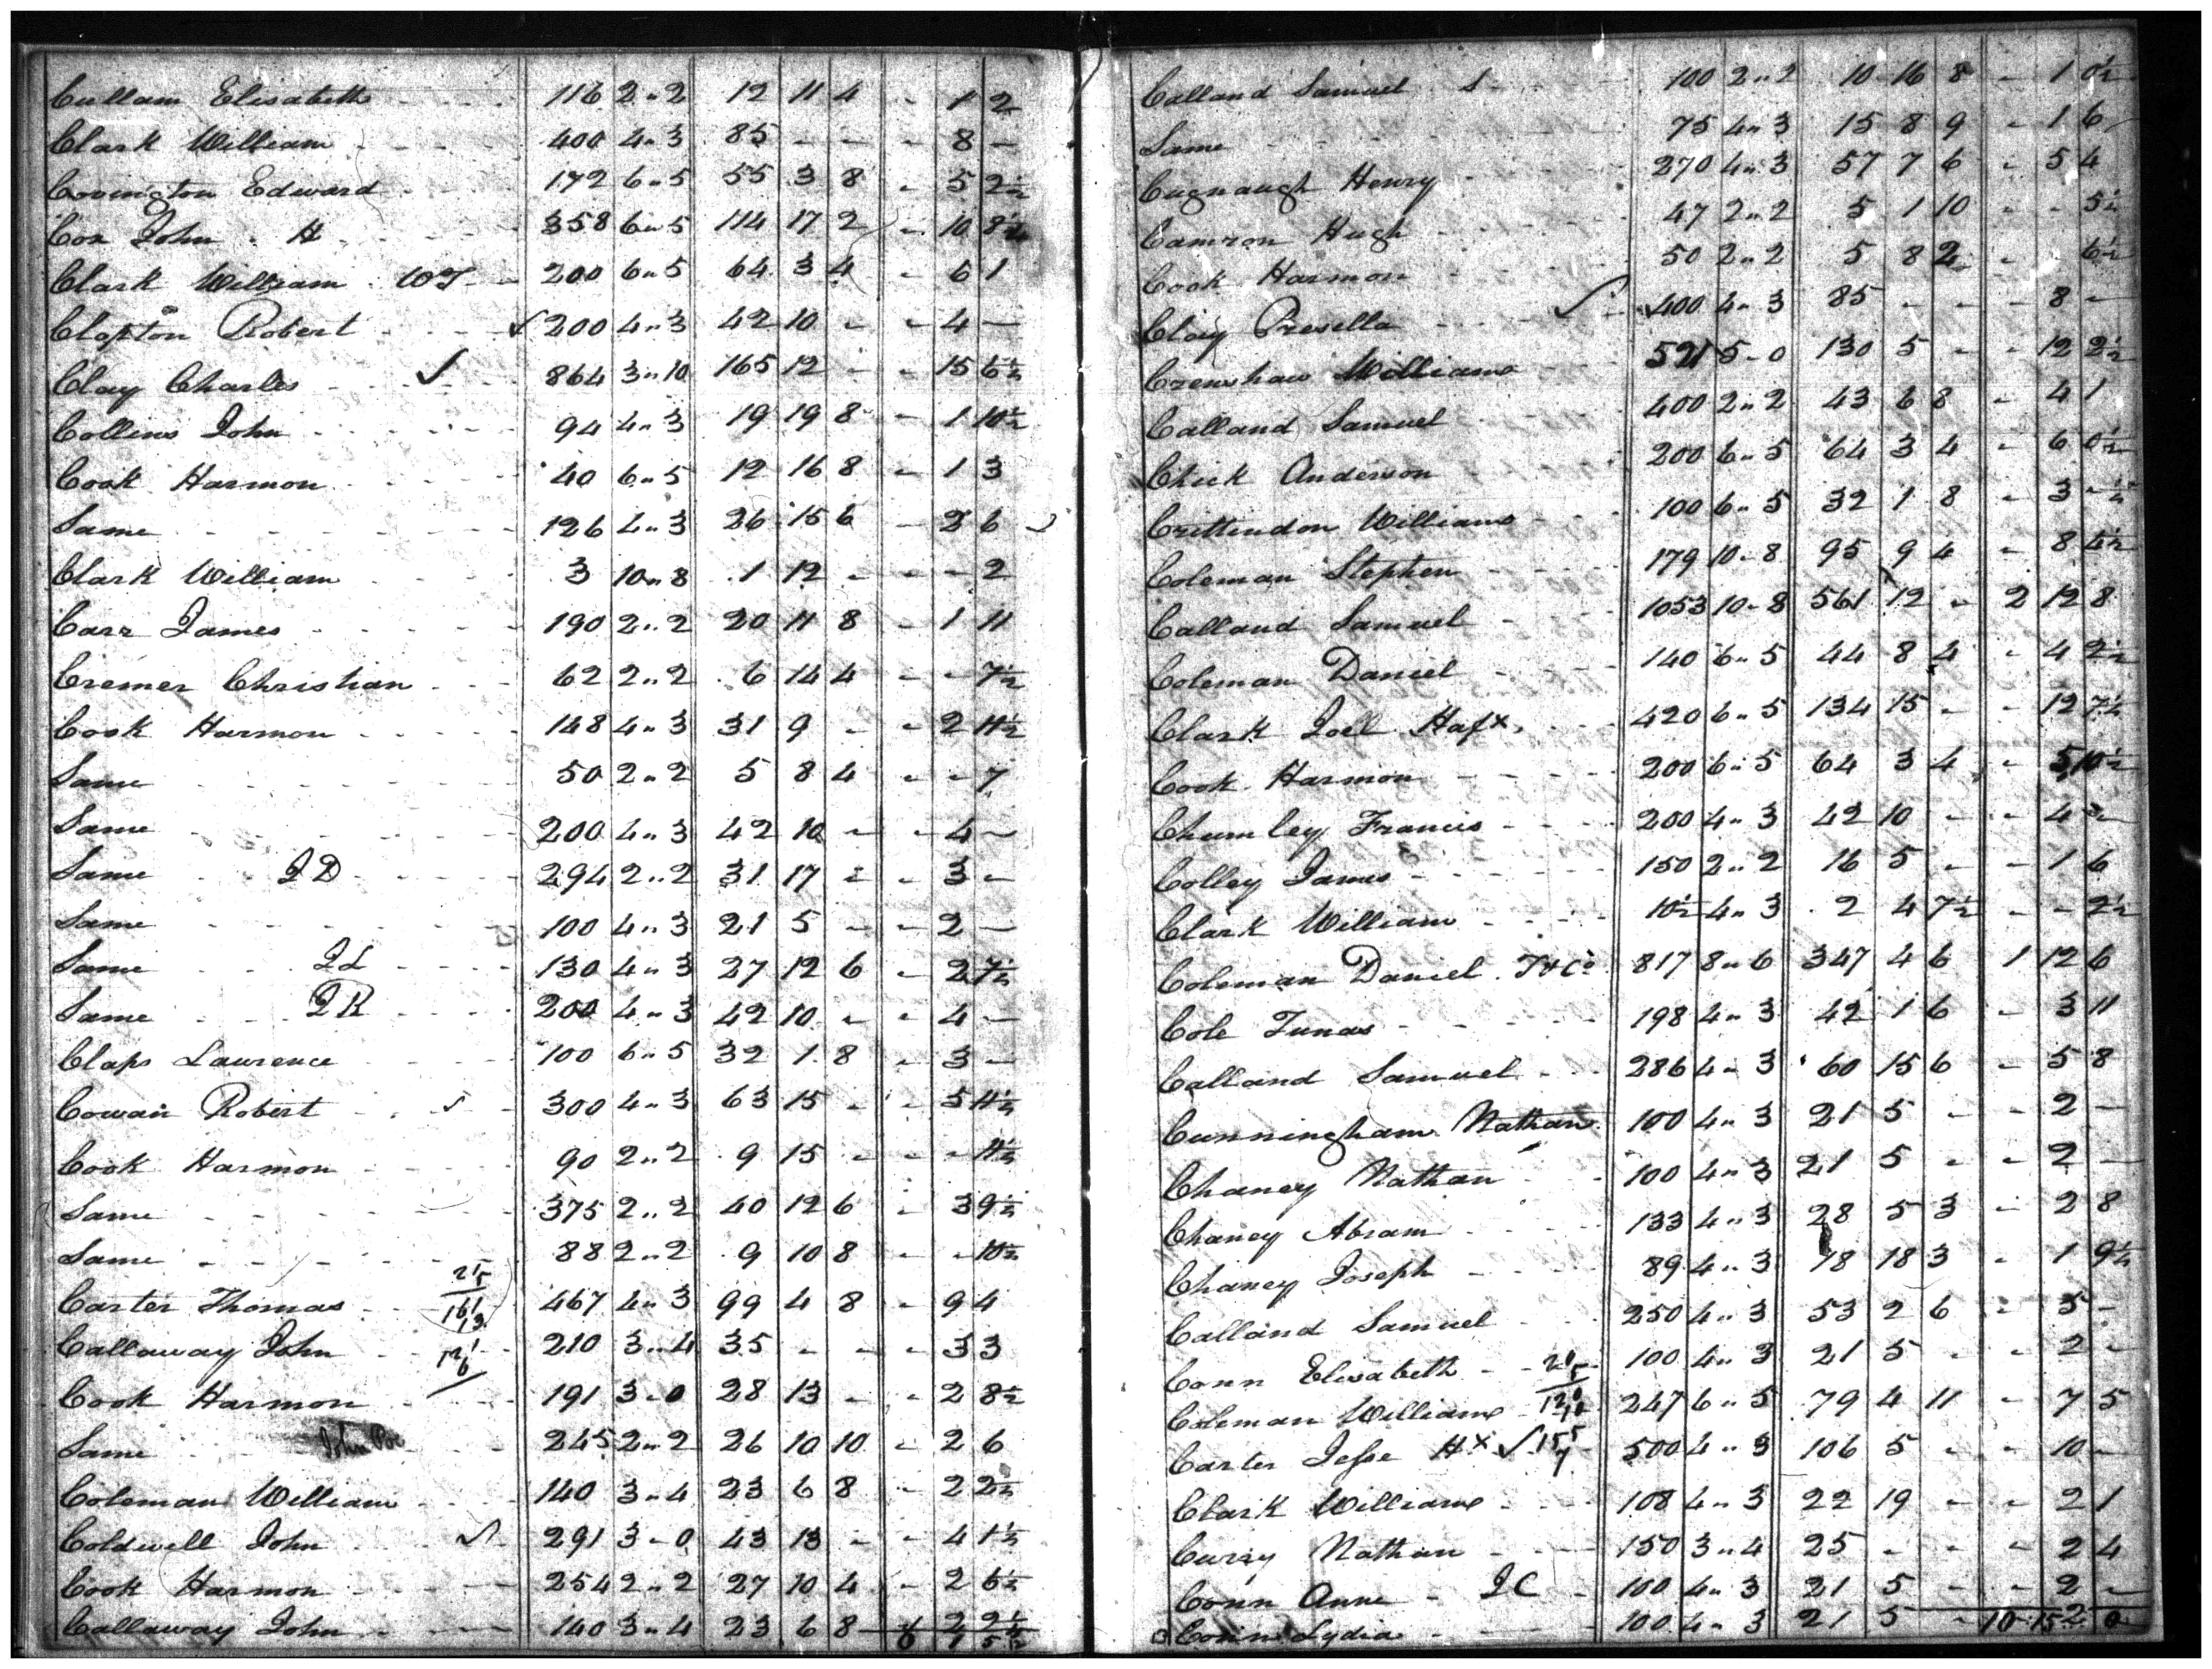 Cullam Elisabeth 116 2" 2 12 11 4 - 1 2
Clark William 400 4" 3 85 - - - 8 -
Covington Edward 172 6" 5 55 3 8 - 5 2½
Cox John H 358 6" 5 114 17 2 - 10 8½
Clark William WT 200 6" 5 64 3 4 - 6 1
Clopton Robert ✓ 200 4" 3 42 10 - - 4 -
Clay Charles ✓ 864 3" 10 165 12 - - 15 6½
Collins John 94 4" 3 19 19 8 - 1 10½
Cook Harmon 40 6" 5 12 16 8 - 1 3
Same 126 4" 3 26 15 6 - 2 6
Clark William 3 10" 8 1 12 - - - 2
Carr James 190 2" 2 20 11 8 - 1 11
Cremer Christian 62 2" 2 6 14 4 - - 7½
Cook Harmon 148 4" 3 31 9 - - 2 11½
Same 50 2" 2 5 8 4 - - 7
Same 200 4" 3 42 10 - - 4 -
Same JD 294 2" 2 31 17 - - 3 -
Same 100 4" 3 21 5 - - 2 -
Same JL 130 4" 3 27 12 6 - 2 7½
Same JK 200 4" 3 42 10 - - 4 -
Claps Lawrence 100 6" 5 32 1 8 - 3 -
Cowan Robert ✓ 300 4" 3 63 15 - - 5 11½
Cook Harmon 90 2" 2 9 15 - - - 11½
Same 375 2" 2 40 12 6 - 3 9½
Same 88 2" 2 9 10 8 - - 10½
Carter Thomas 467 4" 3 99 4 8 - 9 4
Callaway John 210 3" 4 35 - - - 3 3
Cook Harmon 191 3" 0 28 13 - - 2 8½
Same John Poe 245 2" 2 26 10 10 - 2 6
Coleman William 140 3" 4 23 6 8 - 2 2½
Coldwell John 291 3" 0 43 13 - - 4 1½
Cook Harmon 254 2" 2 27 10 4 - 2 6½
Callaway John 140 3" 4 23 6 8 2 2½
Calland Samuel S 100 2" 2 10 16 8 - 1 0½
Same 75 4" 3 15 8 9 - 1 6
Cugnaugh Henry 270 4" 3 57 7 6 - 5 4
Camron Hugh 47 2" 2 5 1 10 - - 5½
Cook Harmon 50 2" 2 5 8 2 - 6½
Clay Presella ✓ 400 4" 3 85 - - - 8 -
Crenshaw William 521 5" 0 130 5 - - 12 2½
Calland Samuel 400 2" 2 43 6 8 - 4 1
Chick Anderson 200 6" 5 64 3 4 - 6 0½
Crittendon William 100 6" 5 32 1 8 - 3 - ½
Coleman Stephen 179 10" 8 95 9 4 - 8 4½
Calland Samuel 1053 10" 8 561 12 - 2 12 8
Coleman Daniel 140 6" 5 44 8 4 - 4 2½
Clark Joel Hafx 420 6" 5 134 15 - - 12 7½
Cook Harmon 200 6" 5 64 3 4 - 5 10½
Chumley Francis 200 4" 3 42 10 - - 4
Colley James 150 2" 2 16 5 - - 1 6
Clark William 10½ 4" 3 2 4 7½ - - 2½
Coleman Daniel T&Co 817 8" 6 347 4 6 1 12 6
Cole Junas 198 4" 3 42 1 6 - 3 11
Calland Samuel 286 4" 3 60 15 6 - 5 8
Cunningham Nathan 100 4" 3 21 5 - - 2 -
Chaney Nathan 100 4" 3 21 5 - - 2 -
Chaney Abram 133 4" 3 28 5 3 - 2 8
Chaney Joseph 89 4" 3 18 18 3 - 1 9½
Calland Samuel 250 4" 3 53 2 6 - 5 -
Conn Elisabeth 100 4" 3 21 5 - - 2 -
Coleman William 247 6" 5 79 4 11 - 7 5
Carter Jesse Hx ✓ 500 4" 3 106 5 - - 10 -
Clark William 108 4" 3 22 19 - - 2 1
Curry Nathan 150 3" 4 25 - - - 2 4
Conn Anne JC 100 4" 3 21 5 - - 2 -
Conn Lydia 100 4" 3 21 5 - 2
10 15 0